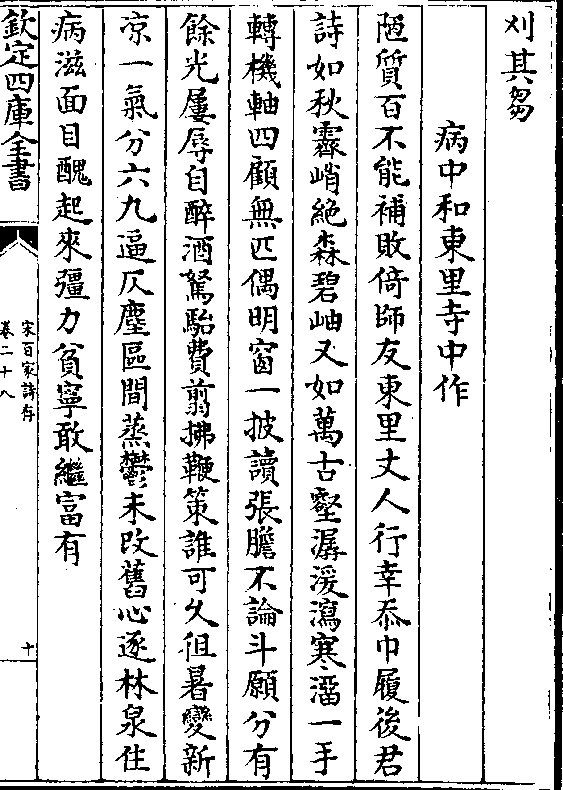 刈其芻
病中和東里寺中作
陋質百不能補敗倚師友東里丈人行幸忝巾履後君
詩如秋霖峭絶森碧岫又如萬古壑潺湲瀉寒溜一手
轉機軸四顧無匹偶明窗一披讀張膽不論斗願分有
餘光屢辱自醉酒駑駘費翦拂鞭策誰可久徂暑變新
凉一氣分六九逼仄塵區間蒸鬱未改舊心逐林泉住
病滋面目醜起來彊力貧寧敢繼富有
欽定四庫全書
宋百家詩存
卷二十八
十